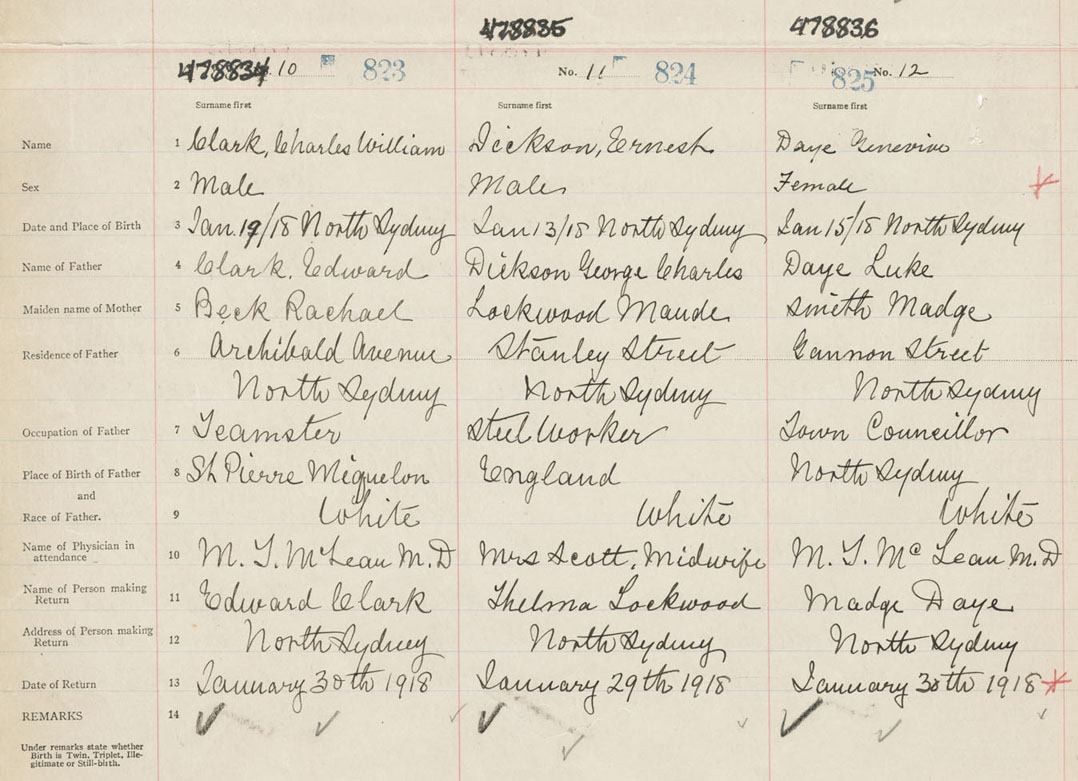 478835 478836
478834 10 823 No. 11 824 825 No. 12
Surname first Surname first Surname first
Name 1 Clark, Charles William Dickson, Ernest Daye Genevive
Sex 2 Male Male Female
Date and Place of Birth 3 Jan. 19/18 North Sydney Jan 13/18 North Sydney Jan 15/18 North Sydney
Name of Father 4 Clark, Edward Dickson George Charles Daye Luke
Maiden name of Mother 5 Beck Rachael Lockwood Maude Smith Madge
Residence of Father 6 Archibald Avenue Stanley Street Gannon Street
North Sydney North Sydney North Sydney
Occupation of Father 7 Teamster Steel Worker Town Councillor
Place of Birth of Father 8 St Pierre Miquelon England North Sydney
and
Race of Father. 9 White White White
Name of Physician in
attendance 10 M. T. McLean M.D Mrs Scott, Midwife M. T. McLean M.D
Name of Person making
Return 11 Edward Clark Thelma Lockwood Madge Daye
Address of Person making
Return 12 North Sydney North Sydney North Sydney
Date of Return 13 January 30th 1918 January 29th 1918 January 30th 1918
REMARKS 14
Under remarks state whether
Birth is Twin, Triplet, Ille-
gitimate or Still-birth.